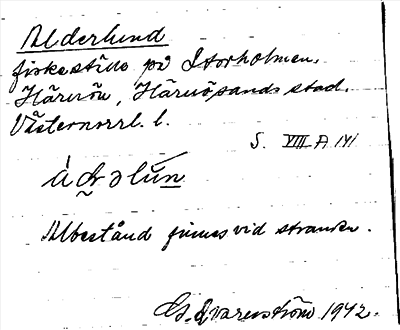 Alderlund
fiskeställe på Storholmen,
Härnön, Härnösands stad,
Västernorrl. l.
S. VIII A 141
Albestånd finnes vid stranden.
G. Qvarnström 1942.